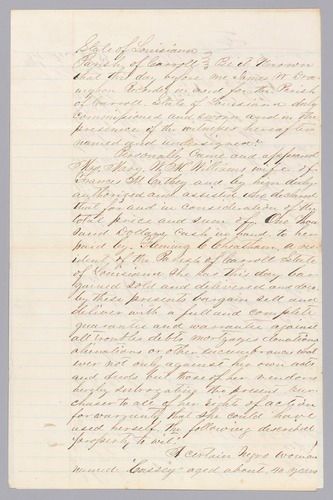 State of Louisiana
Parish of Carroll } Be it Known
that this day before me, James W
Recorder in and for the Parish
of Carroll, State of Louisiana duly
commissioned and sworn and in the
presence of the witnesses hereafter
named and undersigned:
Personally Came and appeared
Mrs. Mary Williams wife of
Frances M. and by him duly
authorized and assisted who declared
that for and in consideration of the
total price and sum of One Thou
sand Dollars Cash in hand to her
paid by Fleming C. a res
ident of the Parish of Carroll State
of Louisiana she has this day bar
gained sold and delivered and does
by these presents bargain sell and
deliver with a full and complete
guarantee and warrantee against
all troubles debts mortgages donations
alienations or other incumbrances what
ever not only against her own acts
and deeds but those of her vendors
subrogating the present pur
chaser to all of her right of action
for warranty that she could have
used herself, the following described
property to wit:
A certain Negro Woman
named "Cassey" aged about 40 years